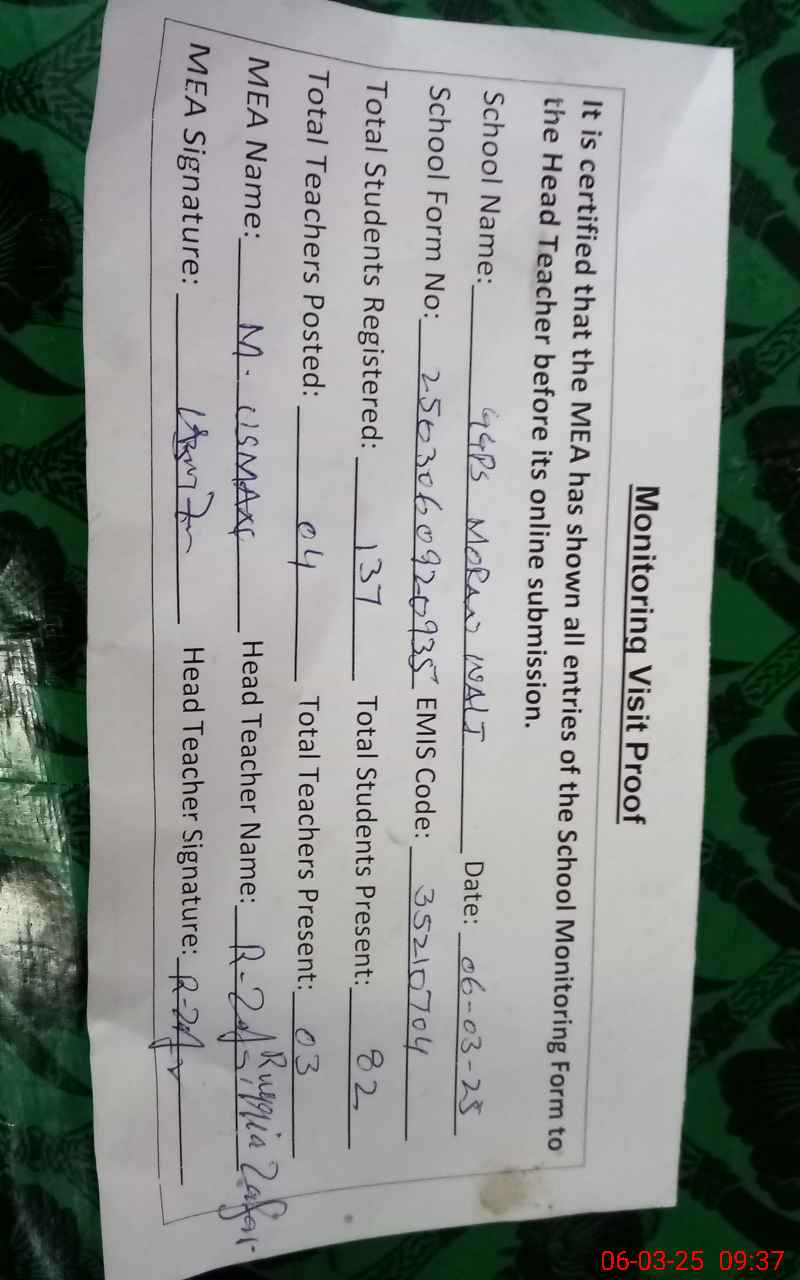 Monitoring Visit Proof
It is certified that the MEA has shown all entries of the School Monitoring Form to
the Head Teacher before its online submission.
School Name: GGPS MORAN WALI Date: 06-03-25
School Form No: 2503060920935 EMIS Code: 35210704
Total Students Registered: 137 Total Students Present: 82
Total Teachers Posted: 04 Total Teachers Present: 03
MEA Name: M. USMAN Head Teacher Name: Ruqqia Zafar
MEA Signature: Head Teacher Signature:
06-03-25 09:37